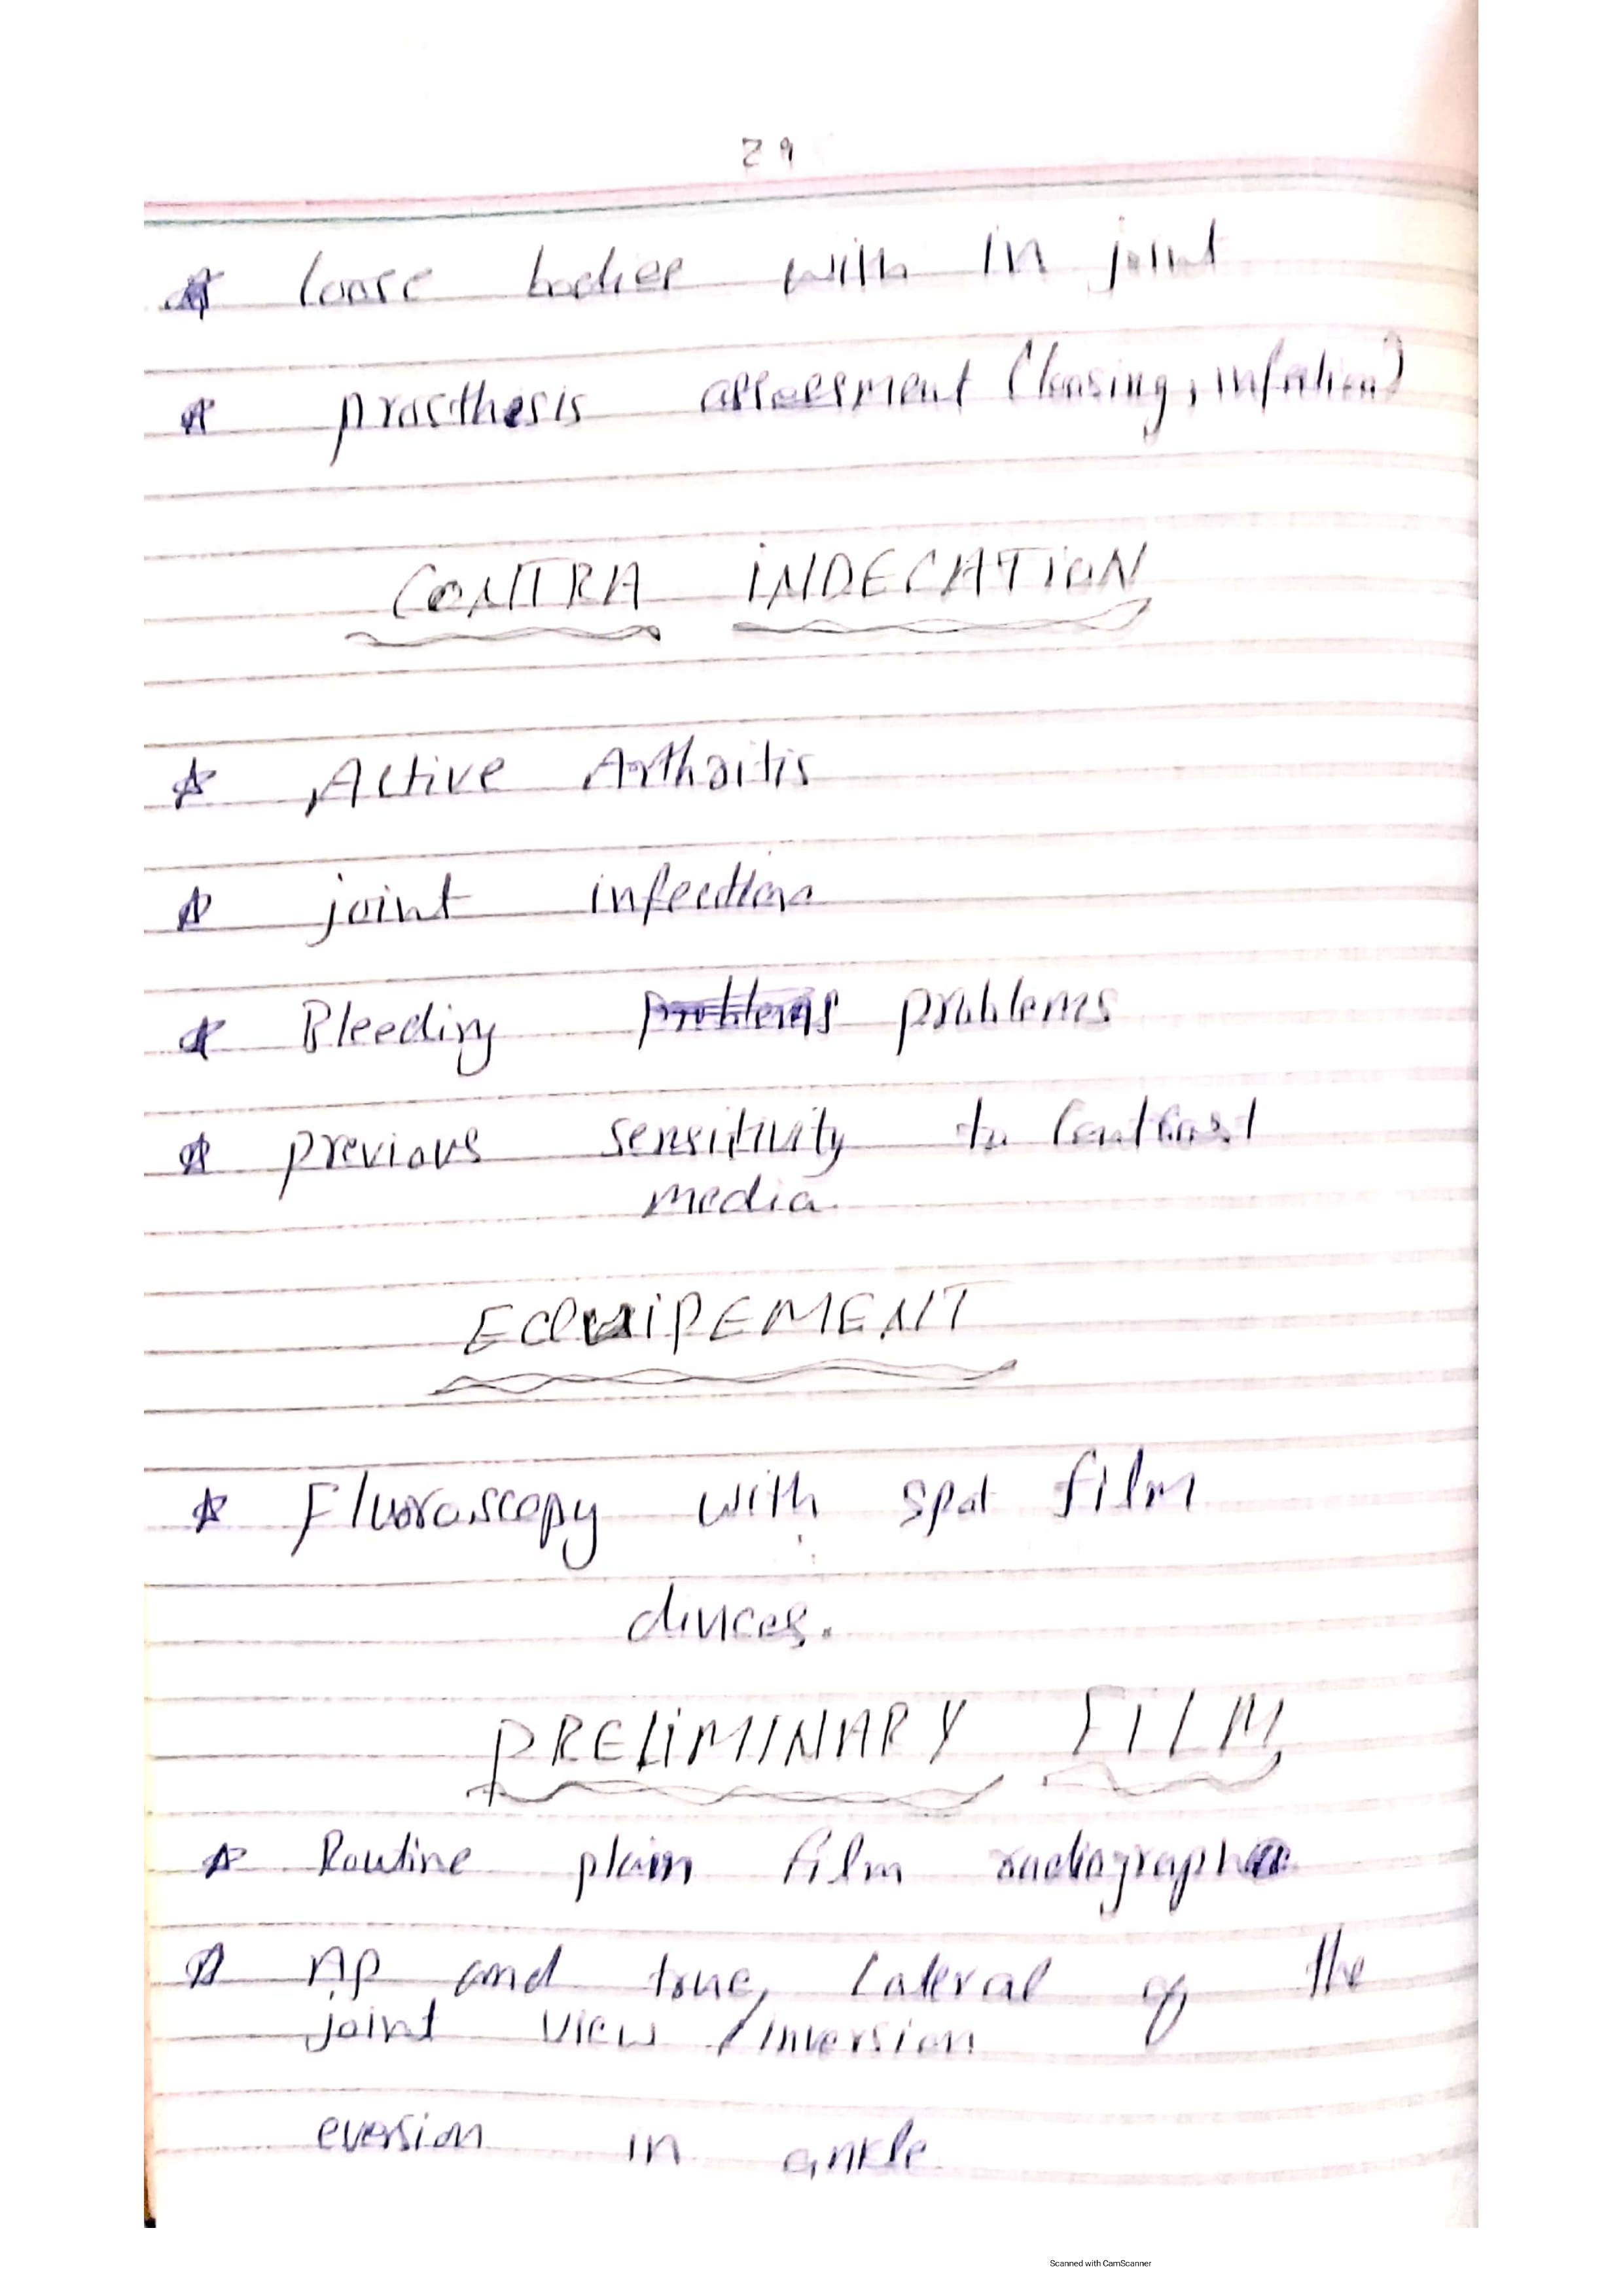 29
☆ Loose bodies with in joint
☆ prosthesis assessment (loosing, infection)
CONTRA INDECATION
☆ Active Arthritis
☆ joint infection
☆ Bleeding problems problems
☆ previous sensitivity to Contrast
media.
EQUIPEMENT
☆ Fluoroscopy with spot film
divices.
PRELIMINARY FILM
☆ Routine plain film radiograph
☆ AP and true, Lateral of the
joint view / inversion
eversion in ankle.
Scanned with CamScanner